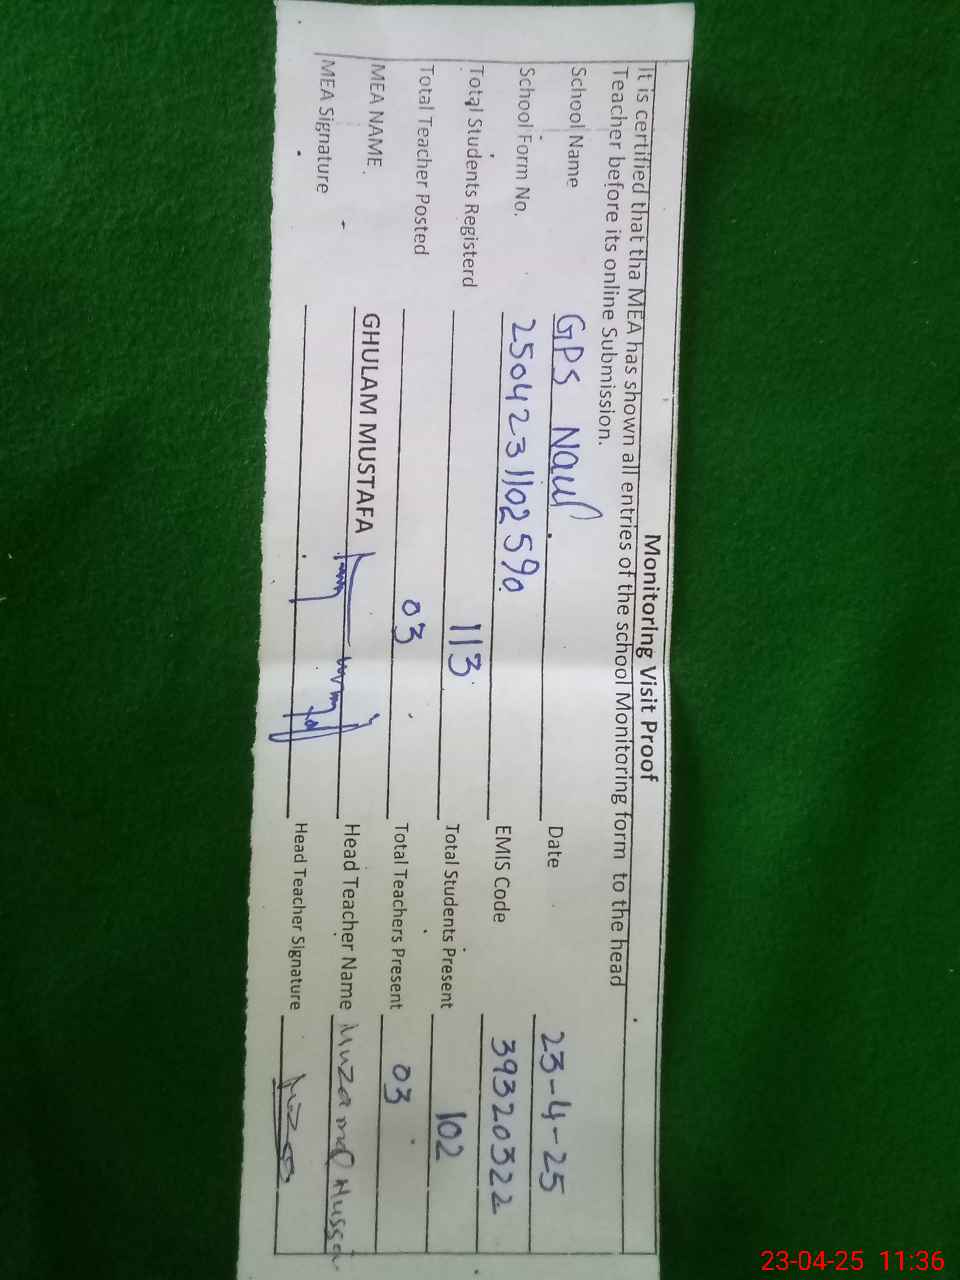 Monitoring Visit Proof
It is certified that tha MEA has shown all entries of the school Monitoring form to the head
Teacher before its online Submission.
School Name GPS Naul Date 23-4-25
School Form No. 2504231102590 EMIS Code 39320322
Total Students Registerd 113 Total Students Present 102
Total Teacher Posted 03 Total Teachers Present 03
MEA NAME. GHULAM MUSTAFA Head Teacher Name Muzamal Hussa
MEA Signature Head Teacher Signature
23-04-25 11:36